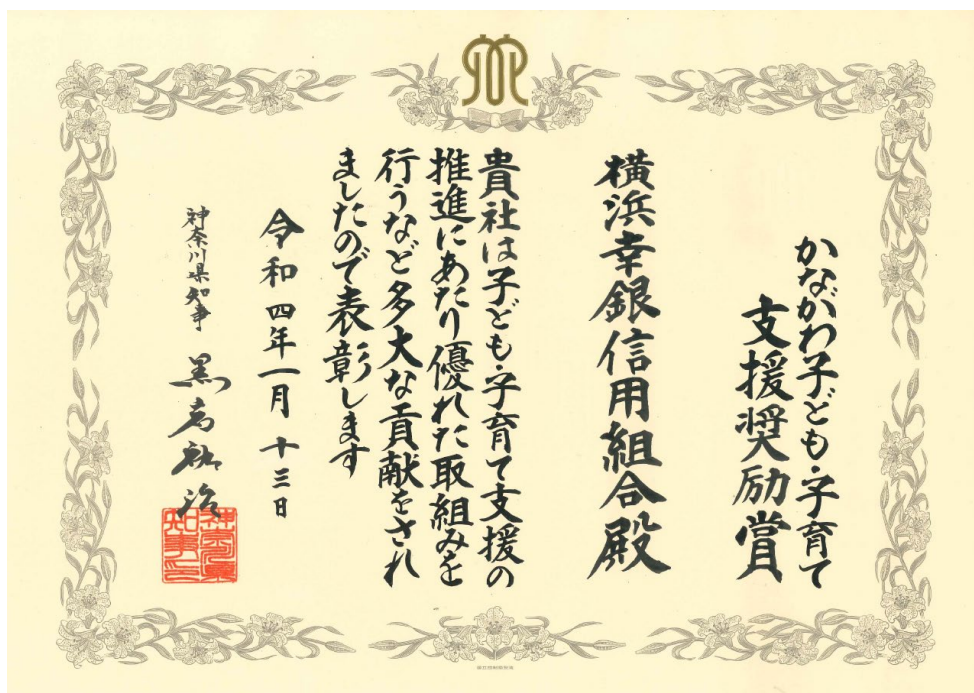 かながわ子ども・子育て
支援奨励賞
横浜幸銀信用組合殿
貴社は子ども・子育て支援の
推進にあたり優れた取組みを
行うなど多大な貢献をされ
ましたので表彰します
令和四年一月十三日
神奈川県知事 黒岩祐治
神奈川県知事之印